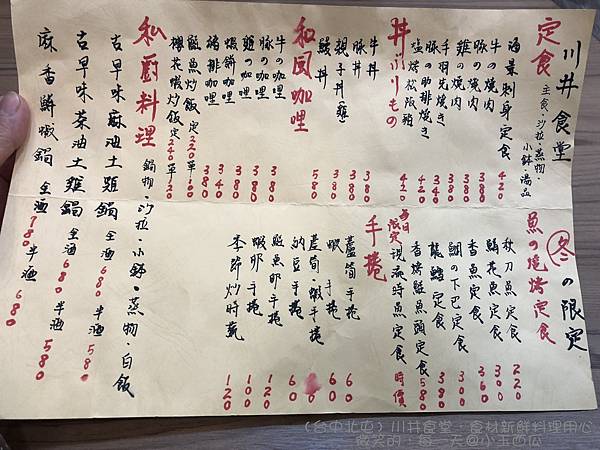 川井食堂
定食
主食、沙拉、蒸物、
小缽、湯品
海景刺身定食 420
牛の燒肉 380
豚の燒肉 380
雞の燒肉 380
手羽先燒き 380
豚の肋排燒き 340
塩烤松阪豬 420
丼ぶりもの
牛丼 380
豚丼 380
親子丼(雞)
鰻丼 580
和風咖哩
牛の咖哩 380
豚の咖哩 380
雞の咖哩 380
蝦餅咖哩 340
豬排咖哩 380
鮭魚炒飯 定220 單120
櫻花蝦炒飯 定240 單120
私廚料理
鍋物、沙拉、小缽、蒸物、白飯
古早味麻油土雞鍋 全酒680 半酒580
古早味茶油土雞鍋 全酒680 半酒580
麻香鱗蠘鍋 全酒780 半酒680
冬の限定
魚の燒烤定食
秋刀魚定食 220
鯖花魚定食 300
香魚定食 360
鯛の下巴定食 300
龍鱈定食 380
香烤鮭魚頭定食 580
每日限定 現流時魚定食 時價
手捲
蘆筍手捲 60
蝦手捲 60
蘆筍蝦手捲
納豆手捲 60
鮭魚卵手捲 120
蝦卵手捲 100
季節炒時蔬 120
(台中北屯)川井食堂,食材新鮮料理用心
微笑的,每一天@小玉西瓜